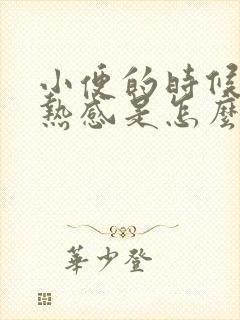 小便的時候
熱感是怎麼
華少登